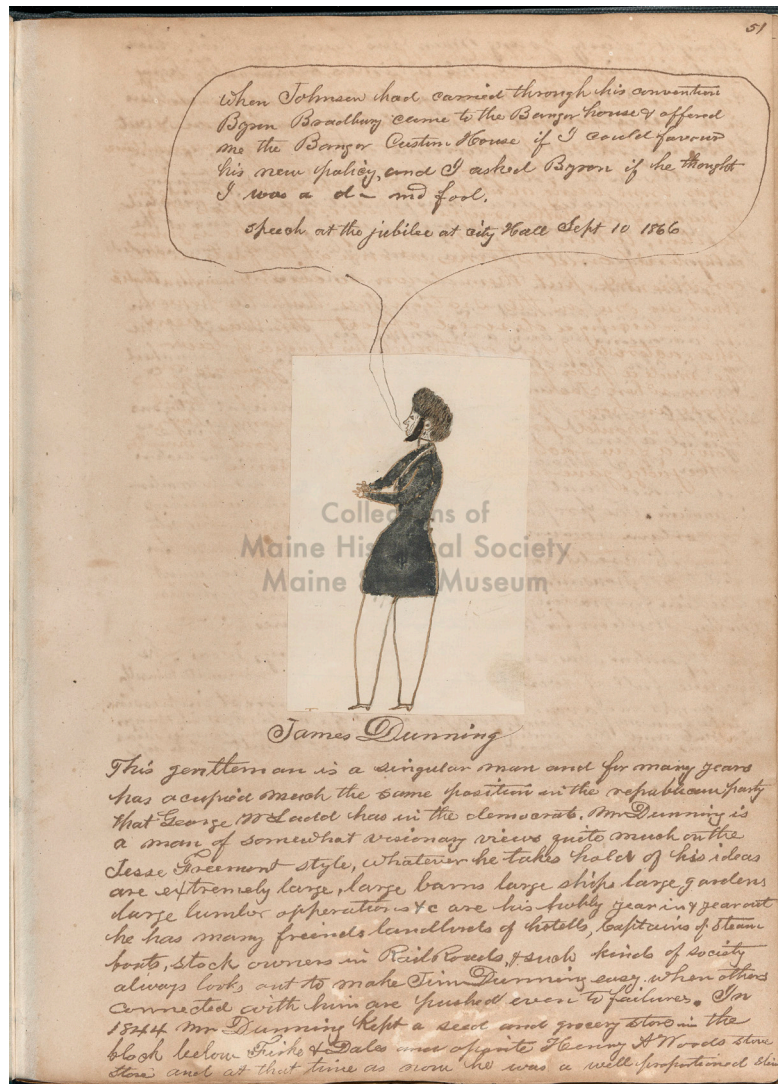 51
when Johnson had carried through his convention
Byron Bradbury came to the Bangor house & offered
me the Bangor Custom House if I could favour
his new policy, and I asked Byron if he thought
I was a d- nd fool.
speech at the jubilee at city Hall Sept 10 1866
Collections of
Maine Historical Society
Maine Museum
James Dunning
This gentleman is a singular man and for many years
has acupied much the same position in the republican party
that George W Ladd has in the democrats. Mr Dunning is
a man of somewhat visionary views quite much on the
Jesse Freemont style, whatever he takes hold of his ideas
are extremely large, large barns large ships large gardens
large lumber opperations &c are his hobly year in & year out
he has many freinds landlords of hotells, Captains of steam
boats, stock owners in RailRoads, & such kinds of society
always looks out to make Jim Dunning easy when others
connected with him are pushed even to failures. In
1844 Mr Dunning kept a seed and grocery store in the
block beelow Fiske & Dales and opposite Henry A Woods stove
store and at that time as now he was a well proportioned